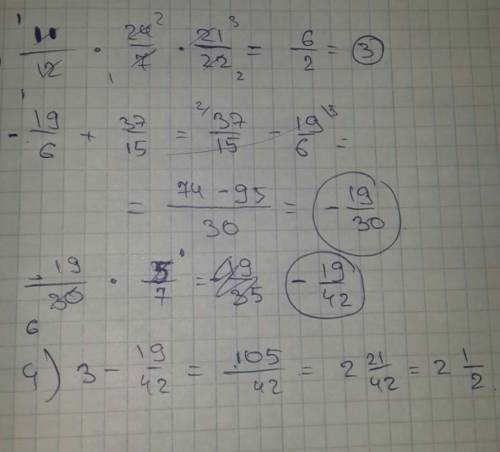 11/12 · 24/7 · 21/22 = 6/2 = 3
- 19/6 + 37/15 = 37/15 - 19/6 =
= 74 - 95/30 = - 19/30
- 19/30 · 5/7 = - 19/35 - 19/42
4) 3 - 19/42 = 105/42 = 2 21/42 = 2 1/2